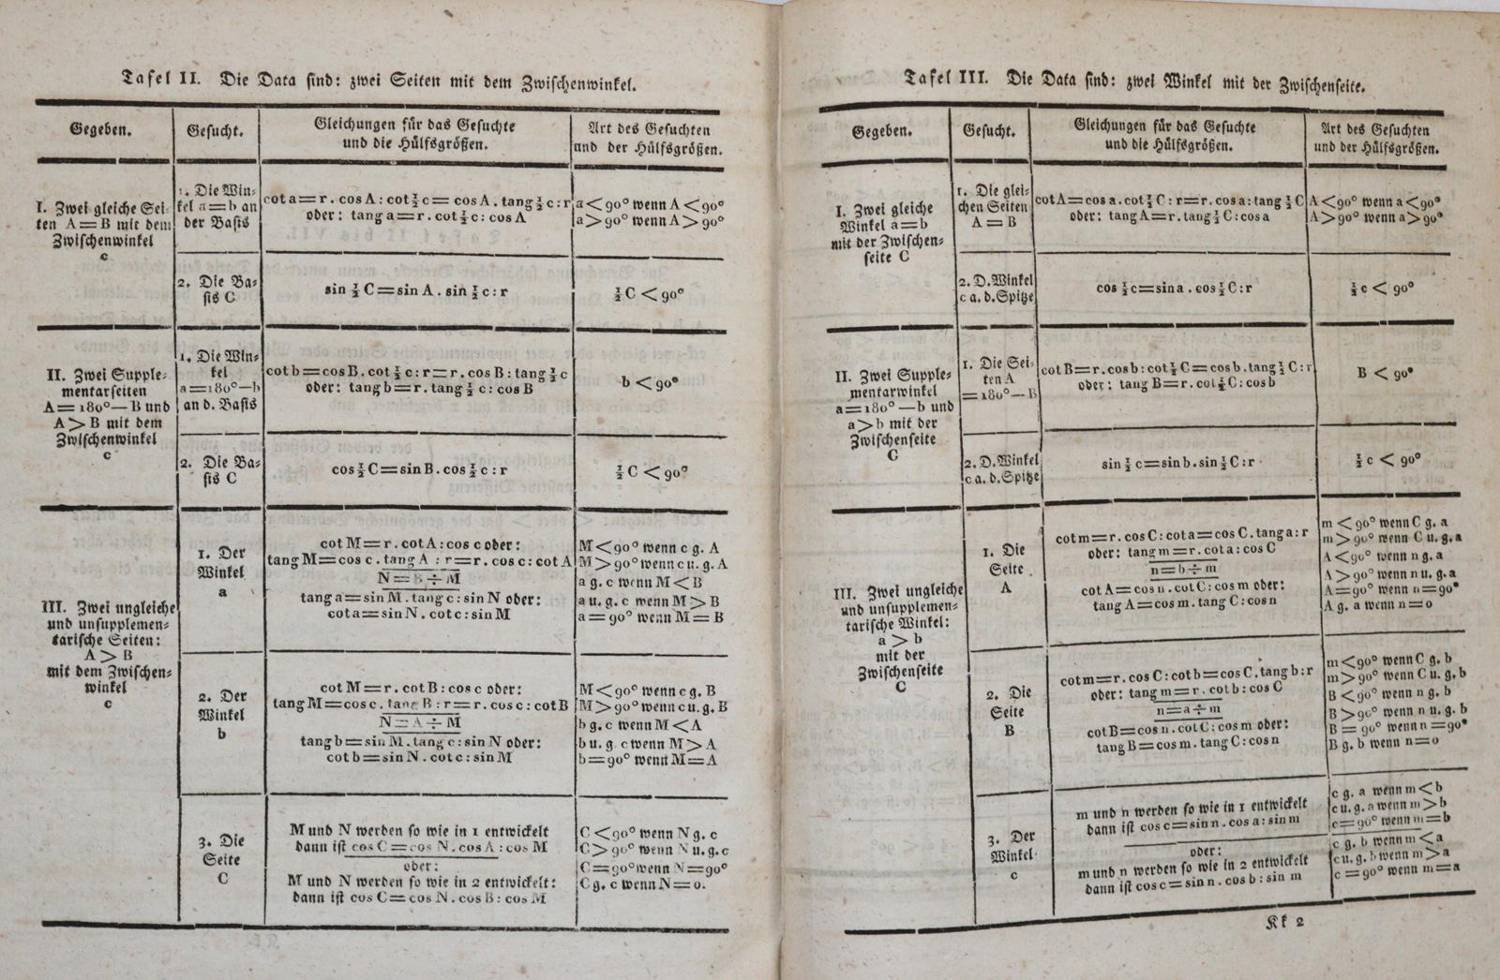 Tafel II. Die Data sind: zwei Seiten mit dem Zwischenwinkel.
Gegeben.
Gesucht.
Gleichungen für das Gesuchte
und die Hülfsgrößen.
Art des Gesuchten
und der Hülfsgrößen.
I. Zwei gleiche Sei-
ten A=B mit dem
Zwischenwinkel
c
1. Die Win-
kel a=b an
der Basis
cot a=r. cos A: cot ½ c= cos A. tang ½ c:r
oder: tang a=r. cot ½ c: cos A
a<90° wenn A<90°
a>90° wenn A>90°
2. Die Ba-
sis C
sin ½ C=sin A. sin ½ c:r
½ C < 90°
II. Zwei Supple-
mentarseiten
A=180°—B und
A>B mit dem
Zwischenwinkel
c
1. Die Win-
kel
a=180°—b
an d. Basis
cot b=cos B. cot ½ c:r=r. cos B: tang ½ c
oder: tang b=r. tang ½ c: cos B
b < 90°
2. Die Ba-
sis C
cos ½ C=sin B. cos ½ c:r
½ C < 90°
III. Zwei ungleiche
und unsupplemen-
tarische Seiten:
A > B
mit dem Zwischen-
winkel
c
1. Der
Winkel
a
cot M=r. cot A: cos c oder:
tang M=cos c. tang A : r=r. cos c: cot A
N=B÷M
tang a=sin M. tang c: sin N oder:
cot a=sin N. cot c: sin M
M<90° wenn c g. A
M>90° wenn c u. g. A
a g. c wenn M<B
a u. g. c wenn M>B
a=90° wenn M=B
2. Der
Winkel
b
cot M=r. cot B: cos c oder:
tang M=cos c. tang B:r=r. cos c: cot B
N=A÷M
tang b=sin M. tang c: sin N oder:
cot b=sin N. cot c: sin M
M<90° wenn c g. B
M>90° wenn c u. g. B
b g. c wenn M<A
b u. g. c wenn M>A
b=90° wenn M=A
3. Die
Seite
C
M und N werden so wie in 1 entwickelt
dann ist cos C=cos N. cos A: cos M
oder:
M und N werden so wie in 2 entwickelt:
dann ist cos C=cos N. cos B: cos M
C<90° wenn N g. c
C>90° wenn N u. g. c
C=90° wenn N=90°
C g. c wenn N=0.
Tafel III. Die Data sind: zwei Winkel mit der Zwischenseite.
Gegeben.
Gesucht.
Gleichungen für das Gesuchte
und die Hülfsgrößen.
Art des Gesuchten
und der Hülfsgrößen.
I. Zwei gleiche
Winkel a=b
mit der Zwischen-
seite C
1. Die glei-
chen Seiten
A = B
cot A=cos a. cot ½ C: r=r. cos a: tang ½ C
oder: tang A=r. tang ½ C: cos a
A<90° wenn a<90°
A>90° wenn a>90°
2. D. Winkel
c a. d. Spitze
cos ½ c=sin a. cos ½ C:r
½ c < 90°
II. Zwei Supple-
mentarwinkel
a=180°—b und
a>b mit der
Zwischenseite
C
1. Die Sei-
ten A
=180°—B
cot B=r. cos b: cot ½ C=cos b. tang ½ C:r
oder: tang B=r. cot ½ C: cos b
B < 90°
2. D. Winkel
c a. d. Spitze
sin ½ c=sin b. sin ½ C:r
½ c < 90°
III. Zwei ungleiche
und unsupplemen-
tarische Winkel:
a > b
mit der
Zwischenseite
C
1. Die
Seite
A
cot m=r. cos C: cot a=cos C. tang a:r
oder: tang m=r. cot a: cos C
n=b÷m
cot A=cos n. cot C: cos m oder:
tang A=cos m. tang C: cos n
m<90° wenn C g. a
m>90° wenn C u. g. a
A<90° wenn n g. a
A>90° wenn n u. g. a
A=90° wenn n=90°
A g. a wenn n=0
2. Die
Seite
B
cot m=r. cos C: cot b=cos C. tang b:r
oder: tang m=r. cot b: cos C
n=a÷m
cot B=cos n. cot C: cos m oder:
tang B=cos m. tang C: cos n
m<90° wenn C g. b
m>90° wenn C u. g. b
B<90° wenn n g. b
B>90° wenn n u. g. b
B=90° wenn n=90°
B g. b wenn n=0
3. Der
Winkel
c
m und n werden so wie in 1 entwickelt
dann ist cos c=sin n. cos a: sin m
oder:
m und n werden so wie in 2 entwickelt
dann ist cos c=sin n. cos b: sin m
c g. a wenn m<b
c u. g. a wenn m>b
c=90° wenn m=b
c g. b wenn m<a
c u. g. b wenn m>a
c=90° wenn m=a
Kk 2